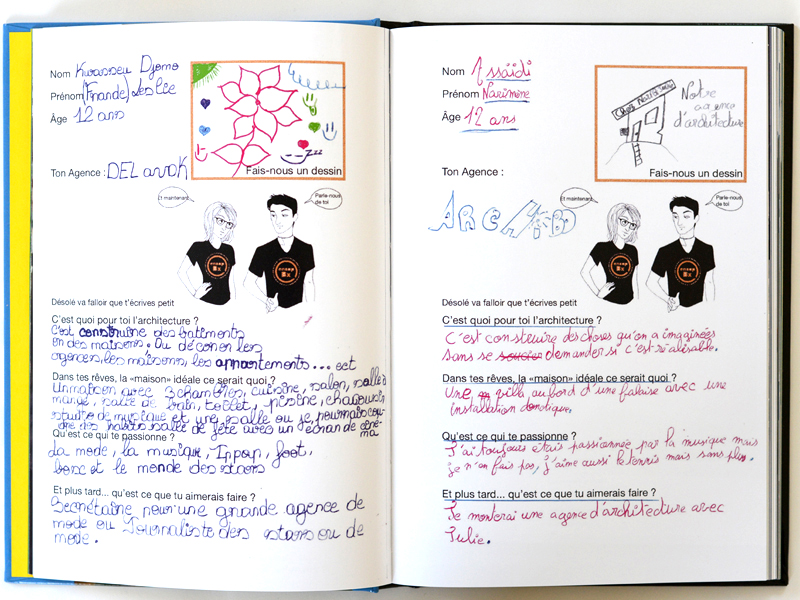 Nom Kwasseu Djomo
Prénom (Fnande) Leslie
Âge 12 ans
Ton Agence : DEL arok
Fais-nous un dessin
Et maintenant
Parle-nous de toi
Désolé va falloir que t'écrives petit
C'est quoi pour toi l'architecture ?
C'est construire des batiments
ou des maisons. Ou déconer les
agences, les maisons, les appartements ... ect
Dans tes rêves, la «maison» idéale ce serait quoi ?
Un maison avec 3 chambres, cuisine, salon, salle à
mangé, salle de bain, toilet, piscine, chaouch,
studio de musique et une salle ou je pourrais cou-
dre des habits salle de fête avec un écran de ciné-
ma
Qu'est ce qui te passionne ?
La mode, la musique, Ippop, foot,
boxe et le monde des stars
Et plus tard... qu'est ce que tu aimerais faire ?
Secrétaire pour une grande agence de
mode ou Journaliste des stars ou de
mode.
Nom Assaïdi
Prénom Narimène
Âge 12 ans
Notre
agence
d'architecture
Fais-nous un dessin
Ton Agence :
Et maintenant
Parle-nous de toi
Désolé va falloir que t'écrives petit
C'est quoi pour toi l'architecture ?
C'est construire des choses qu'on a imaginées
sans se soucier demander si c'est réalisable.
Dans tes rêves, la «maison» idéale ce serait quoi ?
Une villa au bord d'une falaise avec une
installation domotique.
Qu'est ce qui te passionne ?
J'ai toujours étais passionnée par la musique mais
je n'en fais pas, j'aime aussi le tennis mais sans plus.
Et plus tard... qu'est ce que tu aimerais faire ?
Je monterai une agence d'architecture avec
Julie.